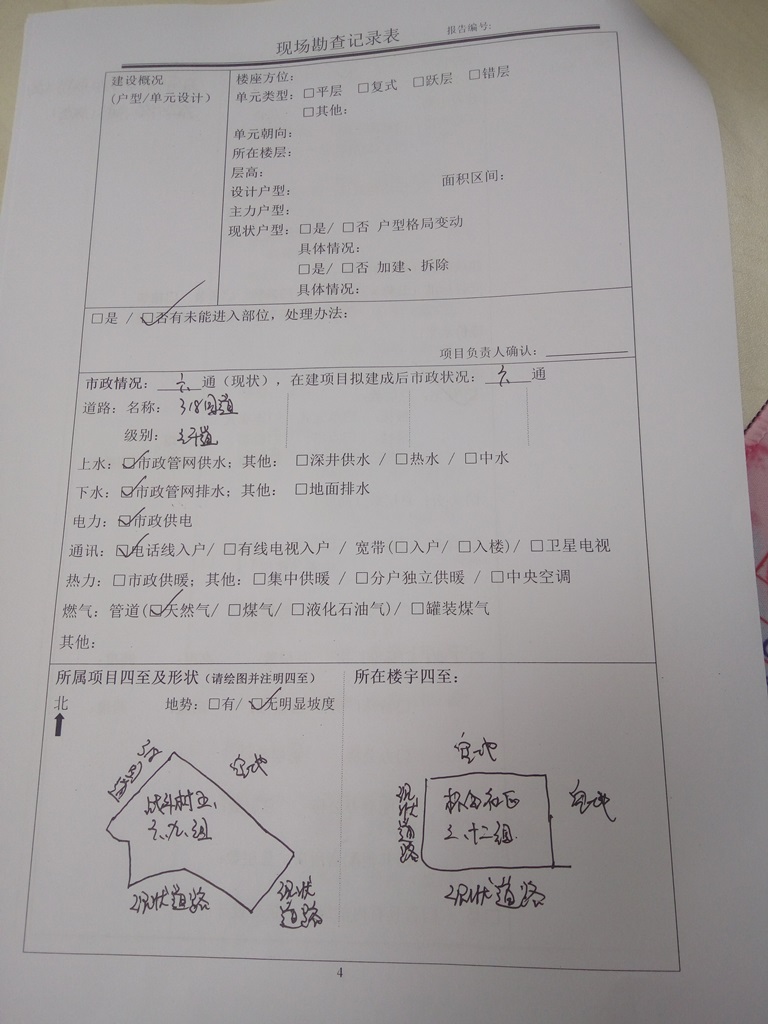 现场勘查记录表
报告编号:
建设概况
(户型/单元设计)
楼座方位:
单元类型: □平层 □复式 □跃层 □错层
□其他:
单元朝向:
所在楼层:
层高:
设计户型: 面积区间:
主力户型:
现状户型: □是/ □否 户型格局变动
具体情况:
□是/ □否 加建、拆除
具体情况:
□是 / ☑否有未能进入部位, 处理办法:
项目负责人确认:
市政情况: 六 通(现状), 在建项目拟建成后市政状况: 六 通
道路: 名称: 318国道
级别:
上水: ☑市政管网供水; 其他: □深井供水 / □热水 / □中水
下水: ☑市政管网排水; 其他: □地面排水
电力: ☑市政供电
通讯: ☑电话线入户/ □有线电视入户 / 宽带(□入户/ □入楼)/ □卫星电视
热力: □市政供暖; 其他: □集中供暖 / □分户独立供暖 / □中央空调
燃气: 管道(☑天然气/ □煤气/ □液化石油气)/ □罐装煤气
其他:
所属项目四至及形状(请绘图并注明四至)
北 地势: □有/ ☑无明显坡度
318国道
空地
战斗村五、
六、九组
现状道路
现状
道路
所在楼宇四至:
空地
现状道路
三、十二组
空地
现状道路
4